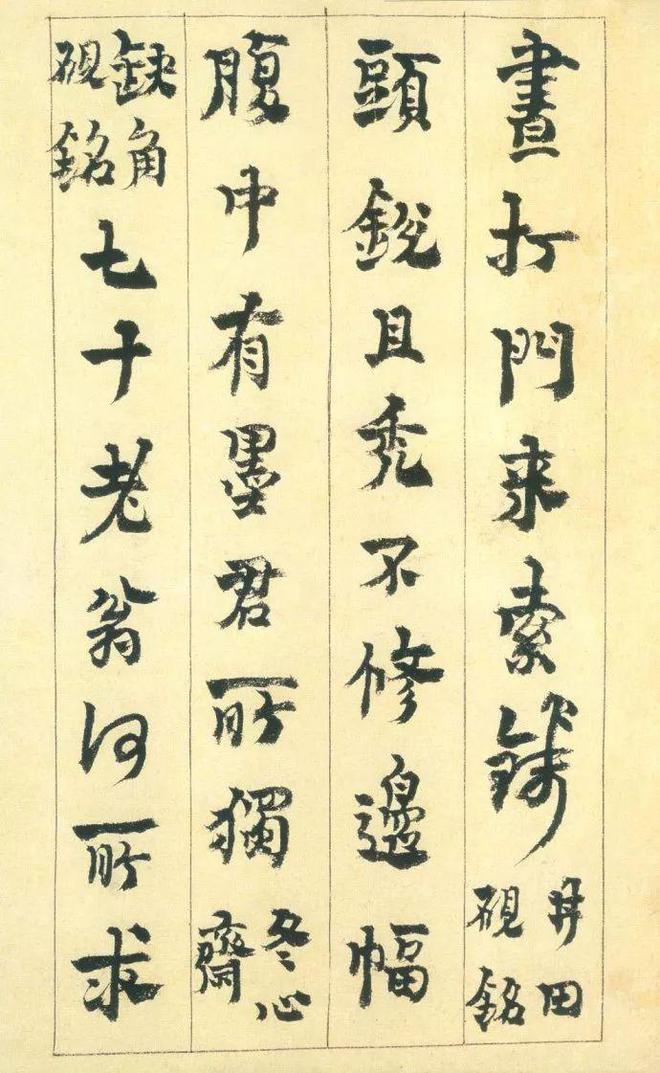 晝打門来索錢井田硯銘
頭銳且禿不修邊幅
腹中有墨君所獨冬心齋
缺角硯銘七十老翁何所求